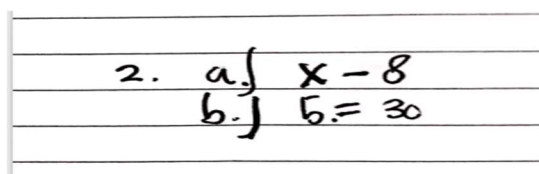 2. a.) x - 8
b.) 5.= 30